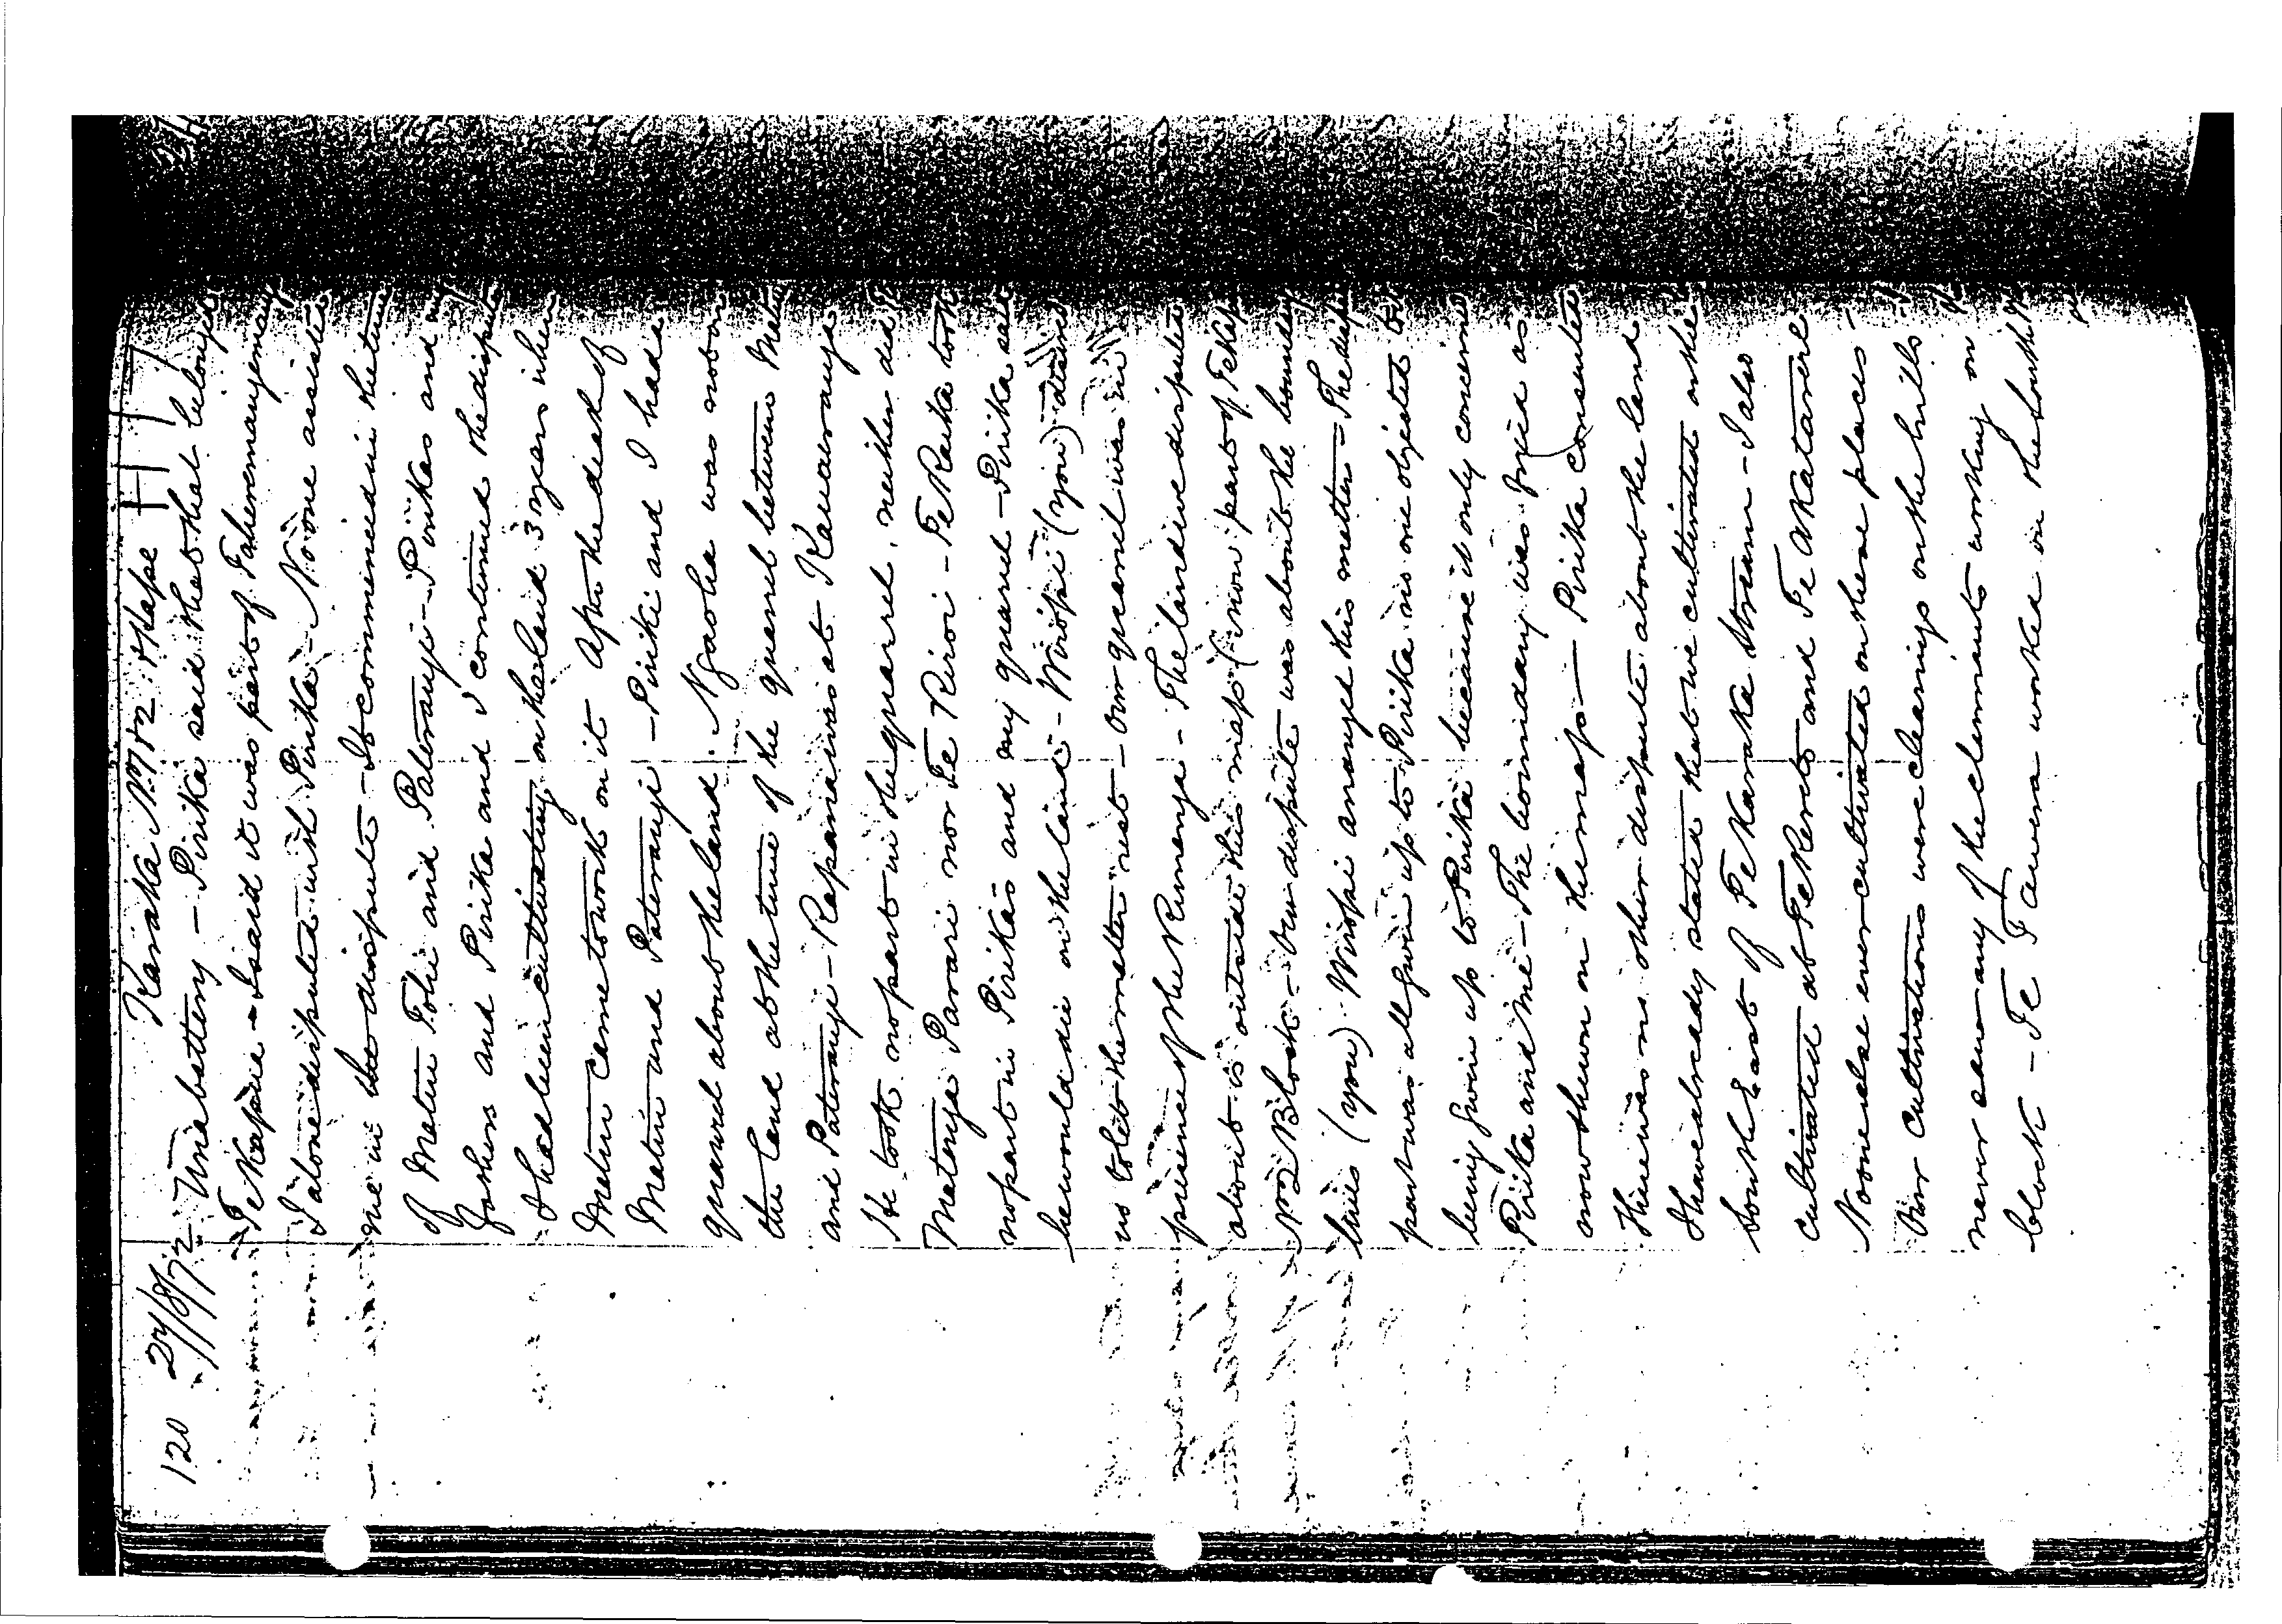 120 27/8/72 Karaka No 2 Hape
Una battery - Pirika said that that belonged
Te Kapua - I said it was part of
I alone disputed with Pirika - No one assisted
me in the dispute - It commenced in the time
of Metiu Tohie and Paterangi - Pirikas and my
fathers and Pirika and I continued the dispute
I had been cultivating on the land 3 years when
Metiu came to work on it After the death of
Metiu and Paterangi - Pirika and I had a
quarrel about the land. Ngaoha was not on
the land at the time of the quarrel between Metiu
and Paterangi - Rapana was at Kauaeranga
He took no part in the quarrel, neither did
Matenga Parari nor Te Ruroi - Te Raika took
no part in Pirika's and my quarrel - Pirika said
he would die on the land - Wiropi (you)
us to let the matter rest - Our quarrel was in
presence of the Runanga - The land we disputed
about is outside this map (now part of
No 2 Block - Our dispute was about the boundary
lines (you) Wiropi arranged this matter - The
part was all given up to Pirika no one objected to
being given up to Pirika because it only concerned
Pirika and me - The boundary was fixed as
now shewn on the map - Pirika consented
There was no other dispute about the land
I have already stated that we cultivated on the
South East of Te Karaka Stream - I also
cultivated at Te Kereto and Te Akatawere
No one else ever cultivated on these places -
Our cultivations were clearings on the hills
never saw any of the claimants working on
block - Te Tawera worked in the South